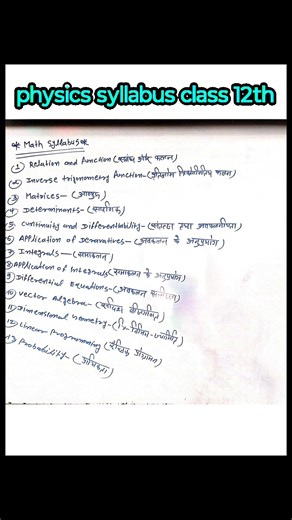 physics syllabus class 12th
* Math Syllabus *
① Relation and function (संबंध और फलन)
② Inverse trigonometry function - (प्रतिलोम त्रिकोणमितीय फलन)
3 Matrices - (आव्यूह)
4 Determinants - (सारणिक)
5 Continuity and Differentiability - (सांतत्य तथा अवकलनीयता)
6 Application of Derivatives - (अवकलन के अनुप्रयोग)
7 Integrals - (समाकलन)
8 Application of Integrals (समाकलन के अनुप्रयोग)
9 Differential Equations - (अवकलन समीकरण)
10 Vector Algebra - (सदिश बीजगणित)
11 Dimensional Geometry - (त्रि-विमीय ज्यामिति)
12 Linear Programming (रैखिक प्रोग्रामन)
13 Probability - (प्रायिकता)